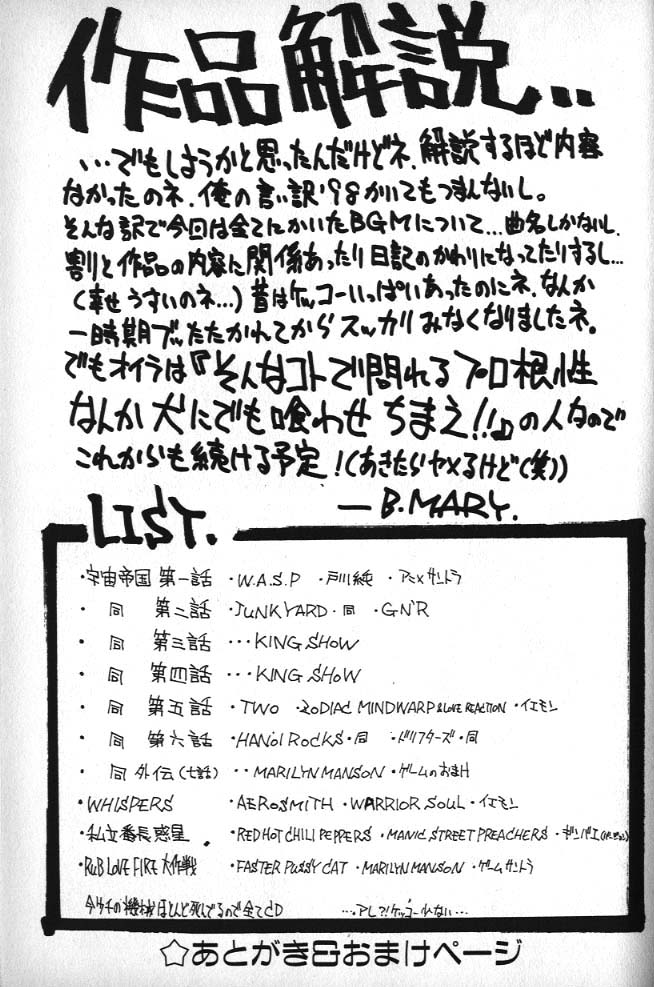 作品解説..
…でもしようかと思ったんだけどネ、解説するほど内容
なかったのネ、俺の言い訳'98かいてもつまんないし。
そんな訳で今回は全てにかいたBGMについて…曲名しかないし、
割と作品の内容に関係あったり日記のかわりになってたりするし…
(幸せうすいのネ…)昔はケッコーいっぱいあったのにネ、なんか
一時期ブッたたかれてからスッカリみなくなりましたネ。
でもオイラは『そんなコトで問れるプロ根性
なんか犬にでも喰わせちまえ!!』の人なので
これからも続ける予定!(あきたらヤメるけど(笑))
—B.MARY.
LIST.
・宇宙帝国 第一話 ・W.A.S.P ・戸川純 ・アニメサントラ
・ 同 第二話 ・JUNKYARD ・同 ・GN'R
・ 同 第三話 …KING SHOW
・ 同 第四話 …KING SHOW
・ 同 第五話 ・TWO ・ZODIAC MINDWARP & LOVE REACTION ・イエモン
・ 同 第六話 ・HANOI ROCKS ・同 ・ドリフターズ ・同
・ 同 外伝(七話) ・・MARILYN MANSON ・ゲームのおまけ
・WHISPERS ・AEROSMITH ・WARRIOR SOUL ・イエモン
・私立番長惑星. ・RED HOT CHILI PEPPERS ・MANIC STREET PREACHERS ・ギンバエ
・RUB LOVE FIRE 大作戦 ・FASTER PUSSY CAT ・MARILYN MANSON ・ゲームサントラ
今ウチの機械ほとんど死んでるので全てCD …アレ?!ケッコー少ない…
☆あとがき&おまけページ